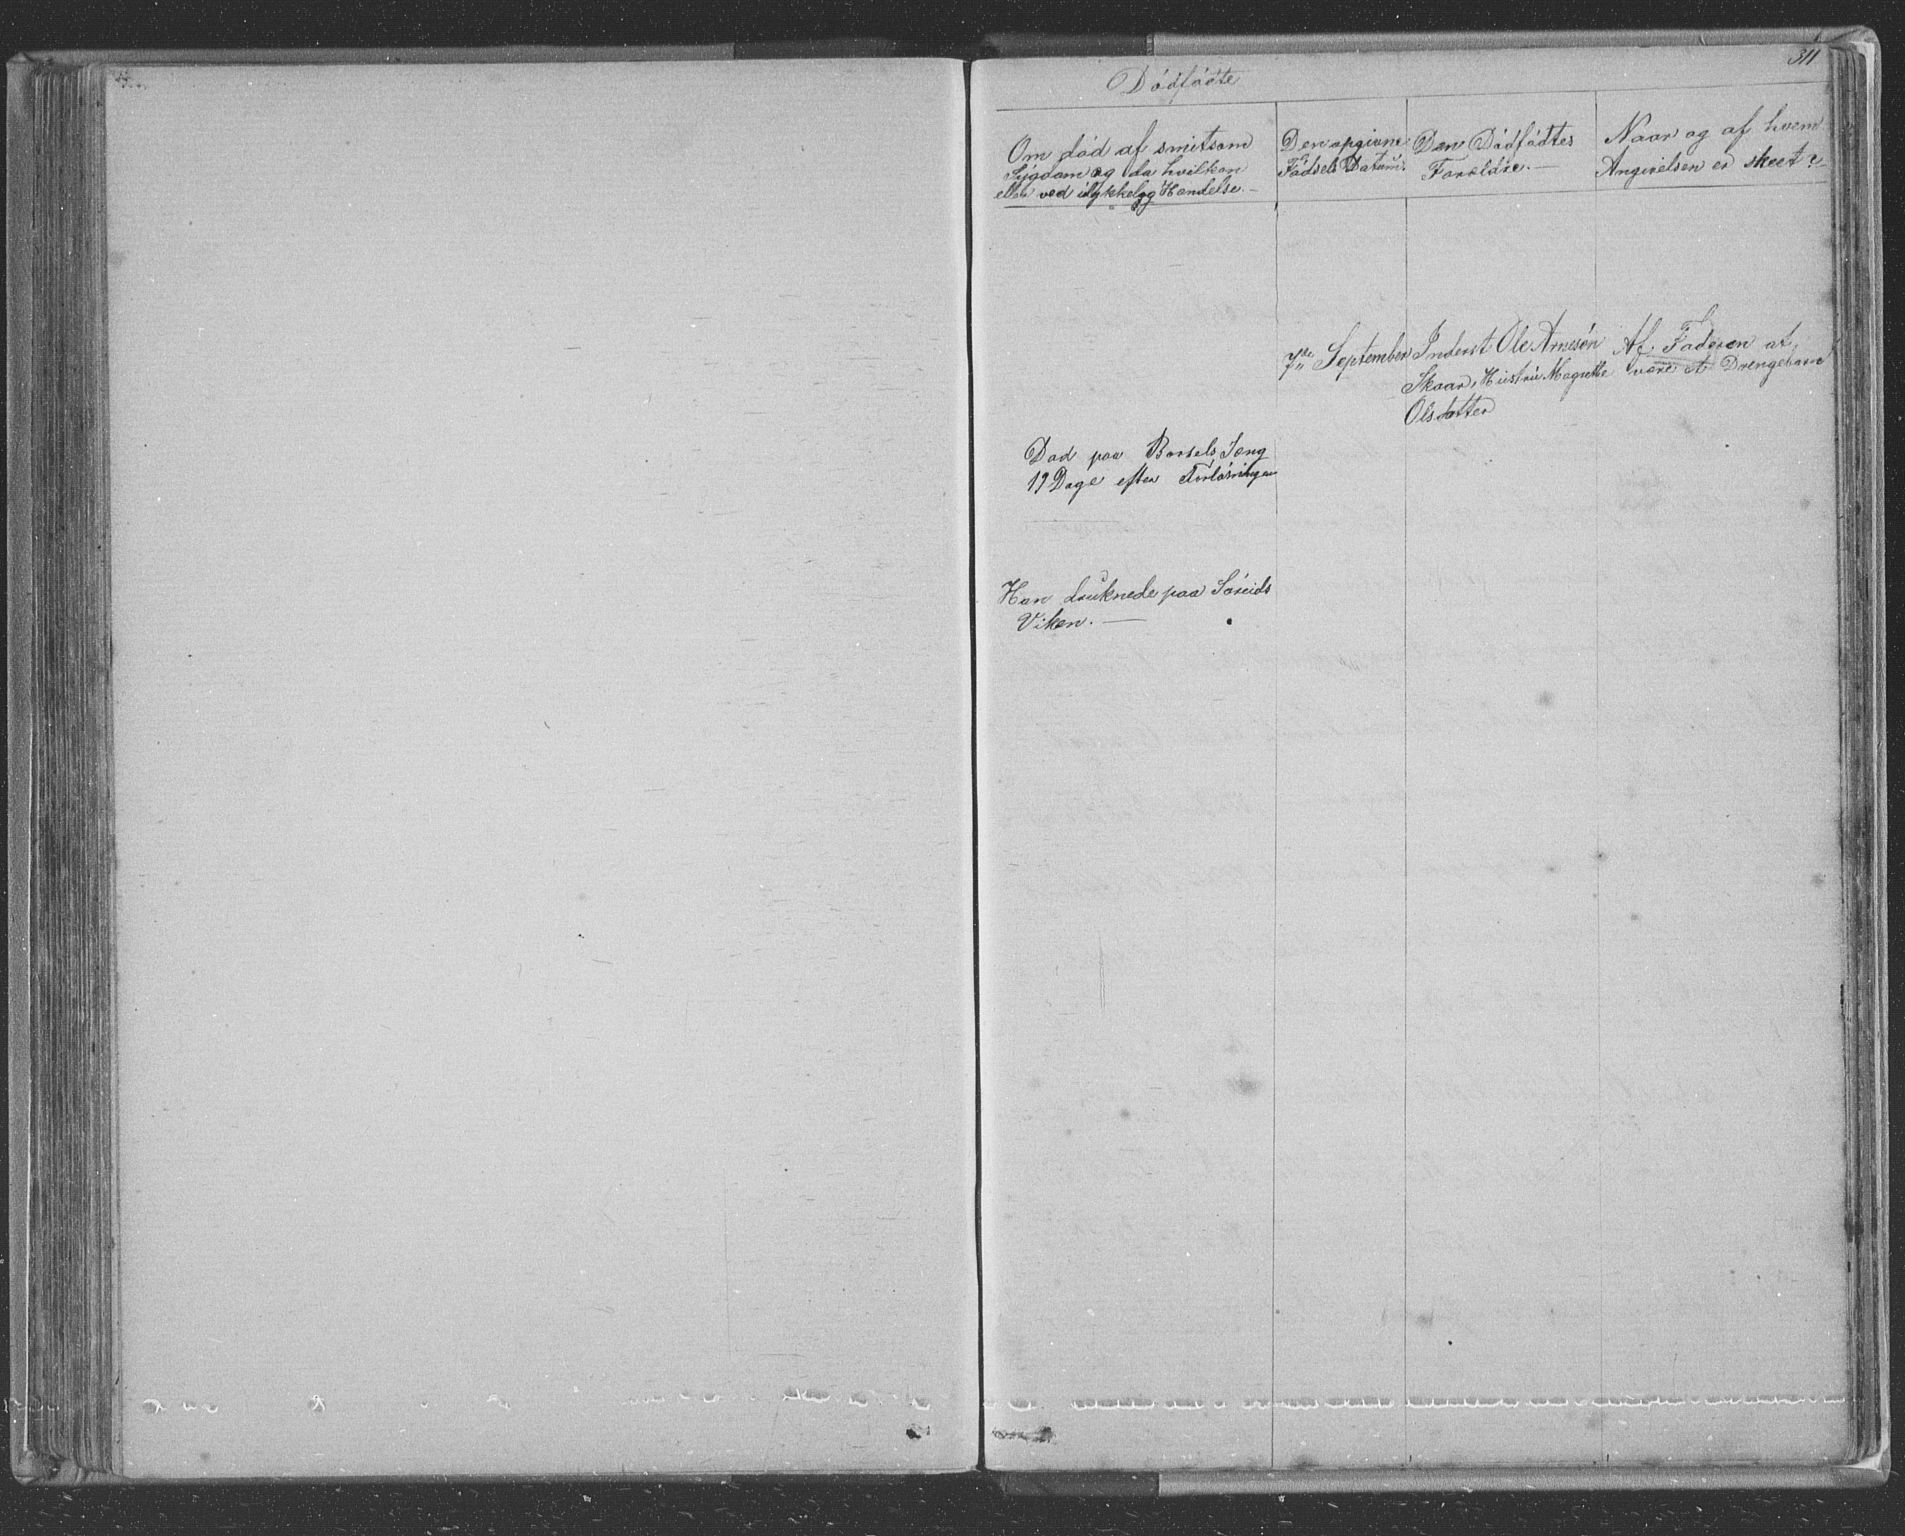 311
Dødfødte
Om død af smitsom
Sygdom og da hvilken
eller ved ulykkelig Hændelse. —
Den opgivne
Fødsels Datum.
Den Dødfødtes
Forældre. —
Naar og af hvem
Angivelsen er skeet?
7de September
Inderst Ole Arnesøn
Skaar, Hustru Magrethe
Olsdatter
Af Faderen at
være et Drengebarn
Død paa Barsels Seng
19 Dage efter Forløsningen
Han druknede paa Søreids
Viken. —